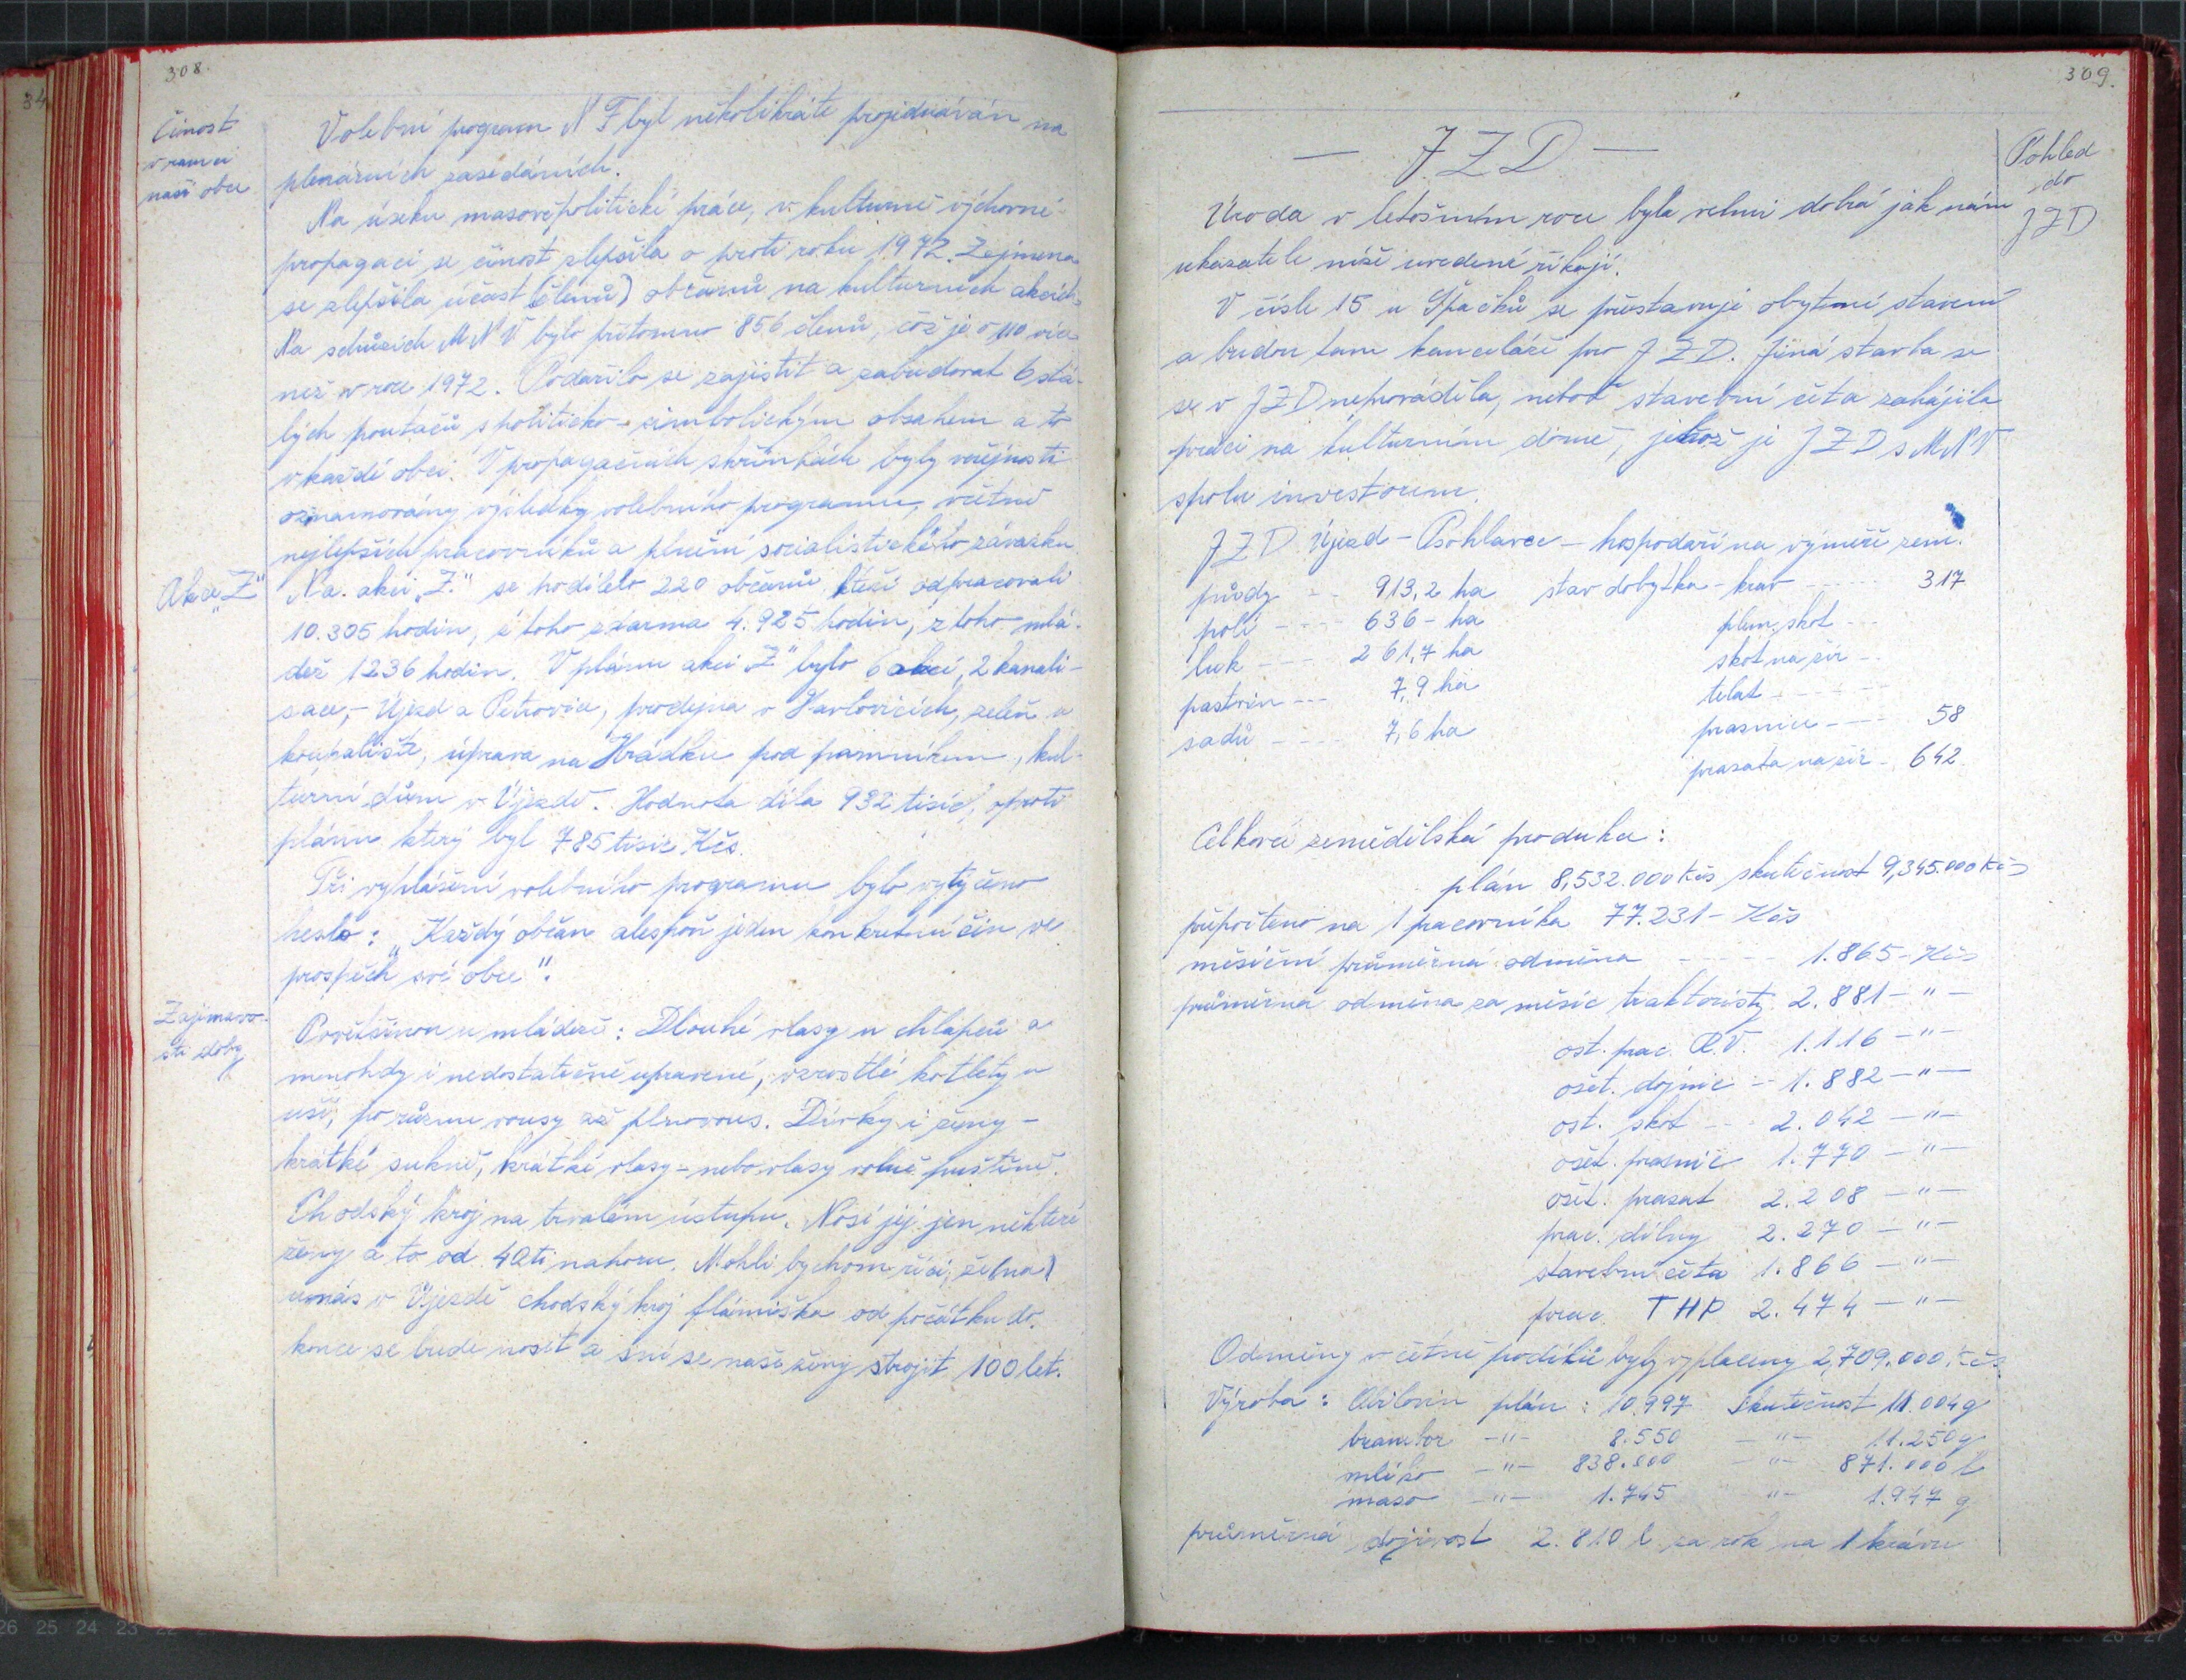 308.
Činost
v rámci
naší obce
Volební program NF byl několikráte projednáván na
plenárních zasedáních.
Na úseku masověpolitické práce, v kulturně výchovné
propagaci se činost zlepšila o proti roku 1972. Zejmena
se zlepšila účast (členů) občanů na kulturních akcích.
Na schůzích MNV bylo přítomno 856 členů, což je o 110 více
než v roce 1972. Podařilo se zajistit a zabudovat 6 stá-
lých poutačů s politicko-simbolickým obsahem a to
v každé obci. V propagačních skříňkách byly veřejnosti
oznamovány výsledky volebního programu, včetně
nejlepších pracovníků a plnění socialistického závazku.
Akce „Z"
Na akci „Z" se podílelo 220 občanů, kteří odpracovali
10.305 hodin, z toho zdarma 4.925 hodin, z toho mlá-
dež 1236 hodin. V plánu akcí „Z" bylo 6 akcí, 2 kanali-
sace, - Újezd a Petrovice, prodejna v Havlovicích, zeleň u
koupaliště, úprava na Hrádku pod pomníkem, kul-
turní dům v Újezdě. Hodnota díla 932 tisíc, oproti
plánu který byl 785 tisíc Kčs.
Při vyhlášení volebního programu bylo vytýčeno
heslo: „Každý občan alespoň jeden konkretní čin ve
prospěch své obce".
Zajímavo-
sti doby
Povětšinou u mládeže: Dlouhé vlasy u chlapců a
mnohdy i nedostatečně upravené, vzrostlé kotlety u
uší, po různu vousy až plnovous. Dívky i ženy -
krátké sukně, krátké vlasy - nebo vlasy volně puštěné.
Chodský kroj na trvalém ústupu. Nosí jej jen některé
ženy a to od 40ti nahoru. Mohli bychom říci, že (na)
u nás v Újezdě chodský kroj od počátku do
konce se bude nosit a sní se naše ženy strojit 100 let.
309.
— JZD —
Pohled
do
JZD
Úroda v letošním roce byla velmi dobrá jak nám
ukazatele níže uvedené říkají.
V čísle 15 u Špačků se přestavuje obytné stavení
a budou tam kanceláře pro JZD. Jiná stavba se
se v JZD neprováděla, neboť stavební četa zahájila
práci na kulturním domě, jehož je JZD s MNV
spolu investorem.
JZD Újezd - Psohlavec - hospodaří na výměře zem.
půdy -- 913,2 ha stav dobytka - krav ------ 317
polí ---- 636 - ha plem. skot ---
luk ---- 261,7 ha skot na žír --
pastvin --- 7,9 ha telat ------
sadů ---- 7,6 ha prasnice ---- 58
prasata na žír - 642
Celková zemědělská produkce:
plán 8,532.000 Kčs skutečnost 9,345.000 Kčs
přepočteno na 1 pracovníka 77.231 - Kčs
měsíční průměrná odměna ----- 1.865 - Kčs
průměrná odměna za měsíc traktoristy 2.881 - " -
ost. prac. R.V. 1.116 - " -
ošet. dojnic -- 1.882 - " -
ost. skot --- 2.042 - " -
ošet. prasnic 1.770 - " -
ošet. prasat 2.208 - " -
prac. dílny 2.270 - " -
stavební četa 1.866 - " -
prac. THP 2.474 - " -
Odměny včetně podílů byly vyplaceny 2,709.000 Kčs
Výroba: Obilovin plán: 10.997 Skutečnost 11.004 q
brambor - " - 8.550 - " - 11.250 q
mléko - " - 838.000 - " - 871.000 l
maso - " - 1.745 " - 1.947 q
průměrná dojivost 2.810 l za rok na 1 krávu